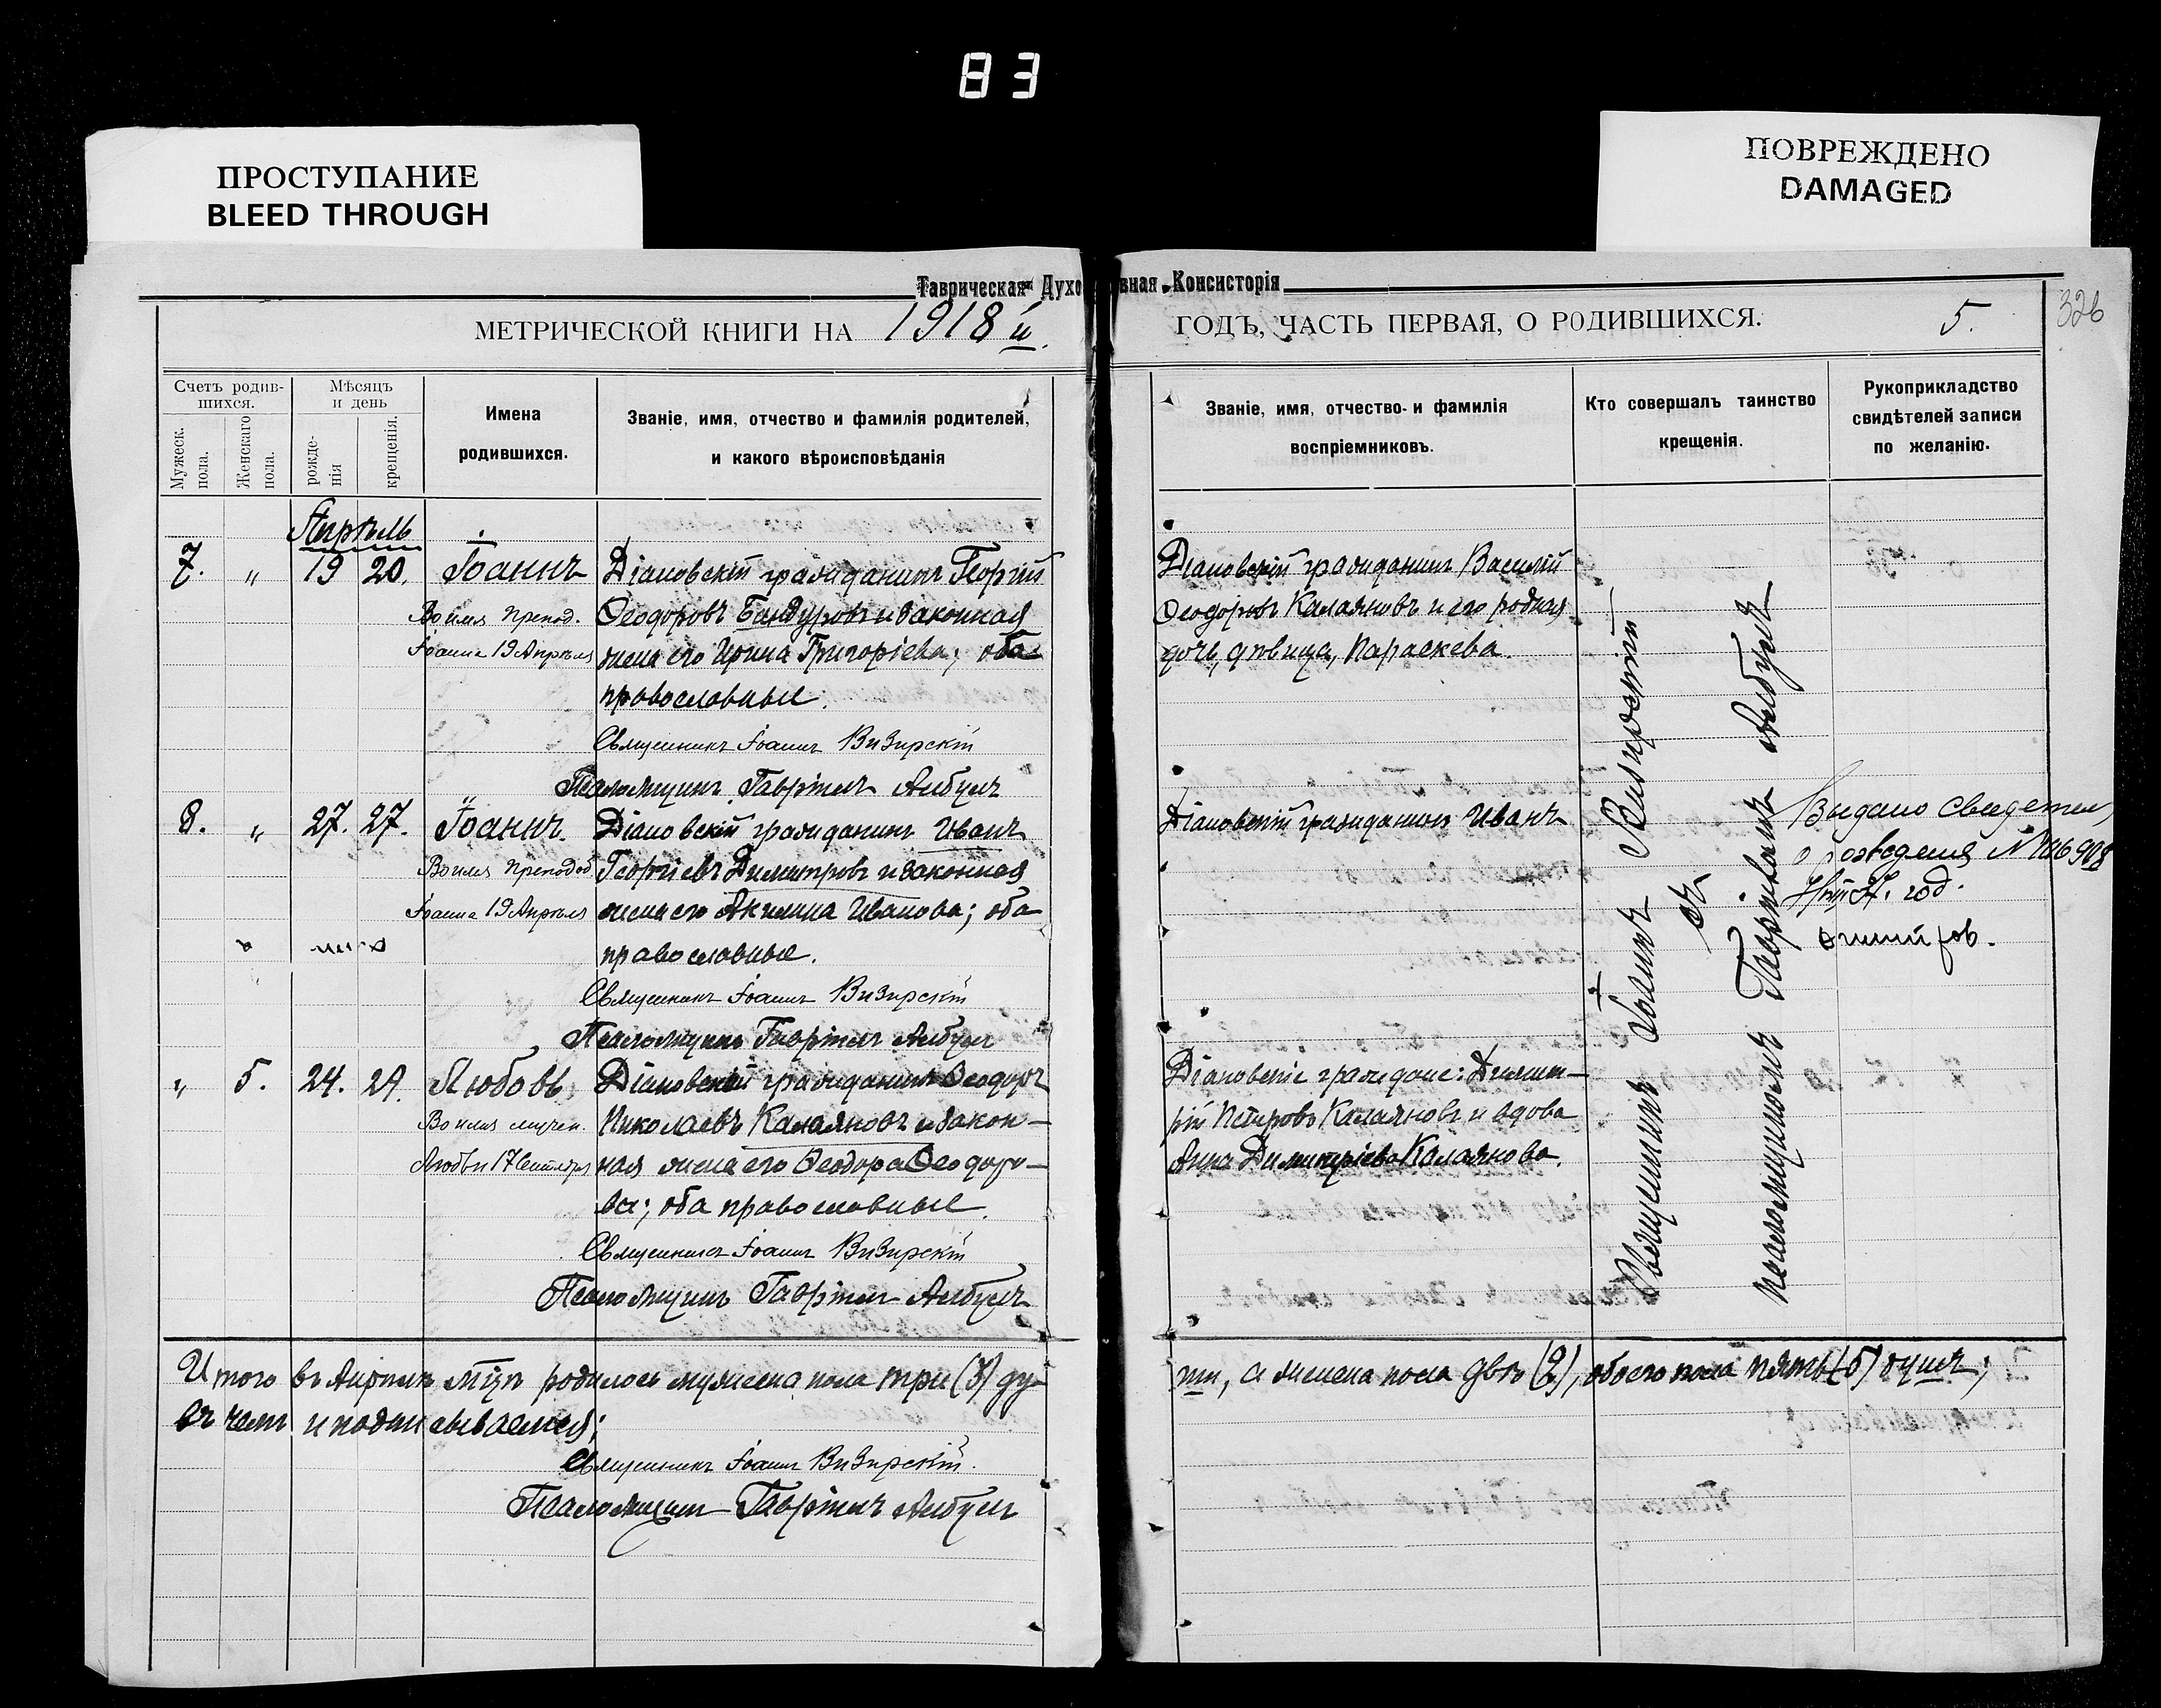 83
ПРОСТУПАНИЕ
BLEED THROUGH
ПОВРЕЖДЕНО
DAMAGED
Таврическая Духовная Консисторія
МЕТРИЧЕСКОЙ КНИГИ НА 1918 й
ГОДЪ, ЧАСТЬ ПЕРВАЯ, О РОДИВШИХСЯ. 5.
326
Счетъ родив-
шихся.
Мужеск.
пола.
Женскаго
пола.
Мѣсяцъ
и день
рожде-
нія
крещенія.
Имена
родившихся.
Званіе, имя, отчество и фамилія родителей,
и какого вѣроисповѣданія
Званіе, имя, отчество и фамилія
воспріемниковъ.
Кто совершалъ таинство
крещенія.
Рукоприкладство
свидѣтелей записи
по желанію.
Апрѣль
7. " 19 20. Іоаннъ
Во имя препод.
Іоанна 19 Апрѣля
Діановскій гражданинъ Георгій
Ѳеодоровъ Бандуровъ и законная
жена его Ирина Григоріева; оба
православные.
Священникъ Іоаннъ Визирскій
Псаломщикъ Гавріилъ Албулъ
Діановскій гражданинъ Василій
Ѳеодоровъ Калаяновъ и его родная
дочь, дѣвица, Параскева.
8. " 27. 27. Іоаннъ.
Во имя преподоб.
Іоанна 19 Апрѣля
Діановскій гражданинъ Иванъ
Георгіевъ Димитровъ и законная
жена его Акилина Иванова; оба
православные.
Священникъ Іоаннъ Визирскій
Псаломщикъ Гавріилъ Албулъ
Діановскій гражданинъ Иванъ
Выдано свидетел
о рождения №
год.
" 5. 24. 29. Любовь
Во имя мучен.
Любви 17 Сентября
Діановскій гражданинъ Ѳеодоръ
Николаевъ Калаяновъ и закон-
ная жена его Ѳеодора Ѳеодоро-
ва; оба православные.
Священникъ Іоаннъ Визирскій
Псаломщикъ Гавріилъ Албулъ
Діановскіе граждане: Димит-
рій Петровъ Калаяновъ и вдова
Анна Димитріева Калаянова.
Священникъ Іоаннъ Визирскій
съ
псаломщикомъ Гавріиломъ Албулъ
Итого въ Апрѣлѣ м̃цѣ родилось мужеска пола три (3) ду-
ши, а женска пола двѣ (2), обоего пола пять (5) душъ;
въ чемъ и подписываемся;
Священникъ Іоаннъ Визирскій.
Псаломщикъ Гавріилъ Албулъ